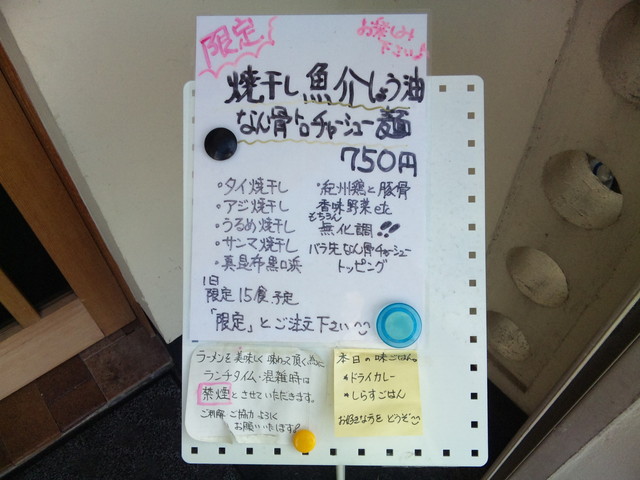 限定
お楽しみ
下さい♪
焼干し魚介しょう油
なん骨トロチャーシュー麺
750円
・タイ焼干し
・アジ焼干し
・うるめ焼干し
・サンマ焼干し
・真昆布黒口浜
・紀州鶏と豚骨
香味野菜etc
もちろん
無化調!!
バラ先なん骨チャーシュー
トッピング
1日
限定15食予定
「限定」とご注文下さい
ラーメンを美味しく味わって頂く為に
ランチタイム・混雑時は
禁煙とさせていただきます。
ご理解ご協力よろしく
お願いいたします
本日の味ごはん。
・ドライカレー
・しらすごはん
お好きな方をどうぞ